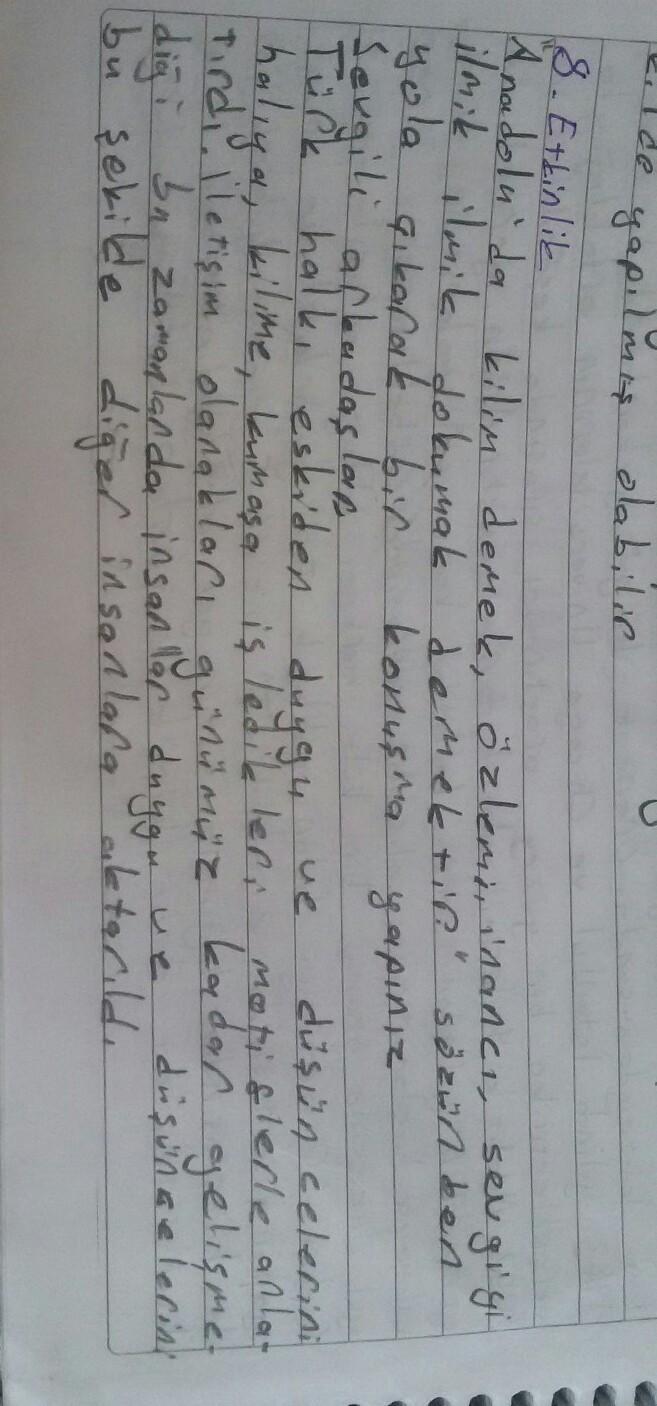 yapılmış olabilir
8. Etkinlik
"Anadolu'da kilim demek, özlemi, inancı, sevgiyi
ilmik ilmik dokumak demektir." sözünben
yola çıkarak bir konuşma yapınız
Sevgili arkadaşlar,
Türk halkı eskiden duygu ve düşüncelerini
halıya, kilime, kumaşa işledikleri motiflerle anla-
tırdı. İletişim olanakları günümüz kadar gelişme-
diği bu zamanlarda insanlar duygu ve düşüncelerini
bu şekilde diğer insanlara aktarıldı.